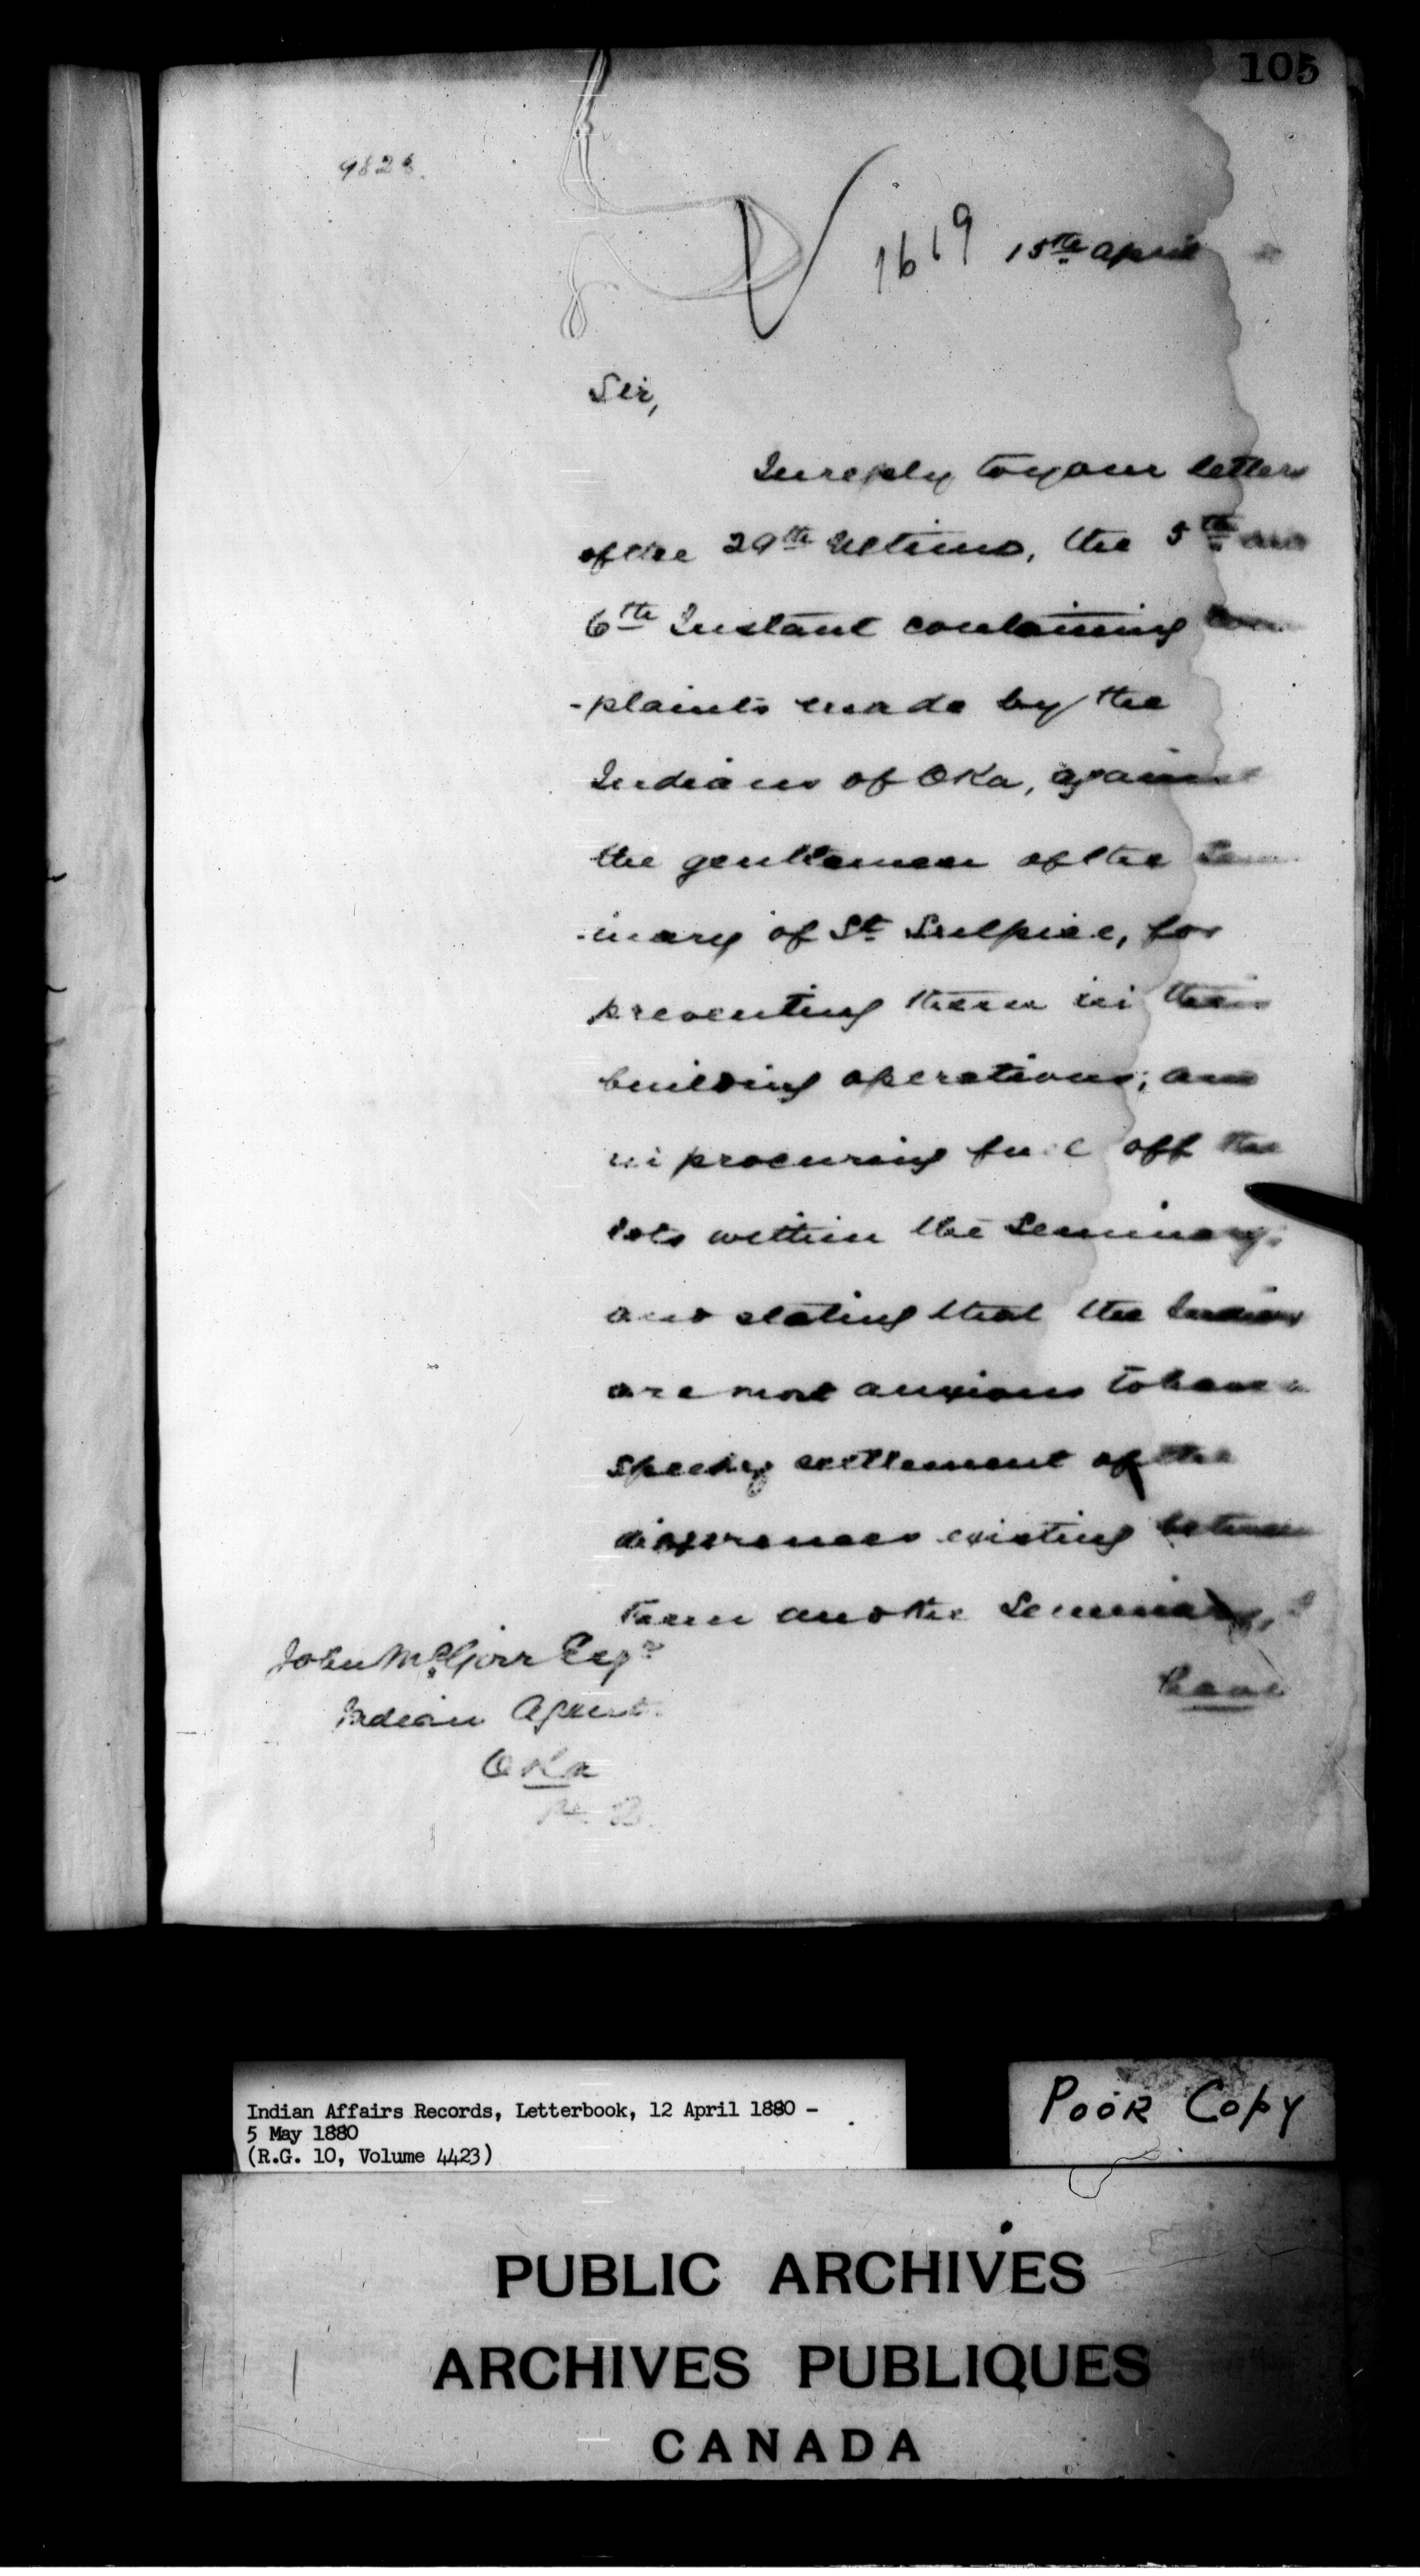 105
9828.
1619 15th April
Sir,
In reply to your letters
of the 29th Ultimo, the 5th and
6th Instant containing com
-plaints made by the
Indians of Oka, against
the gentlemen of the Sem
-inary of St Sulpice, for
preventing them in their
building operations, and
in procuring fuel off the
lots within the Seminary,
and stating that the Indians
are most anxious to have a
speedy settlement of the
differences existing between
them and the Seminary, I
have
John McGirr Esqr
Indian Agent
Oka
Indian Affairs Records, Letterbook, 12 April 1880 -
5 May 1880
(R.G. 10, Volume 4423)
Poor Copy
PUBLIC ARCHIVES
ARCHIVES PUBLIQUES
CANADA